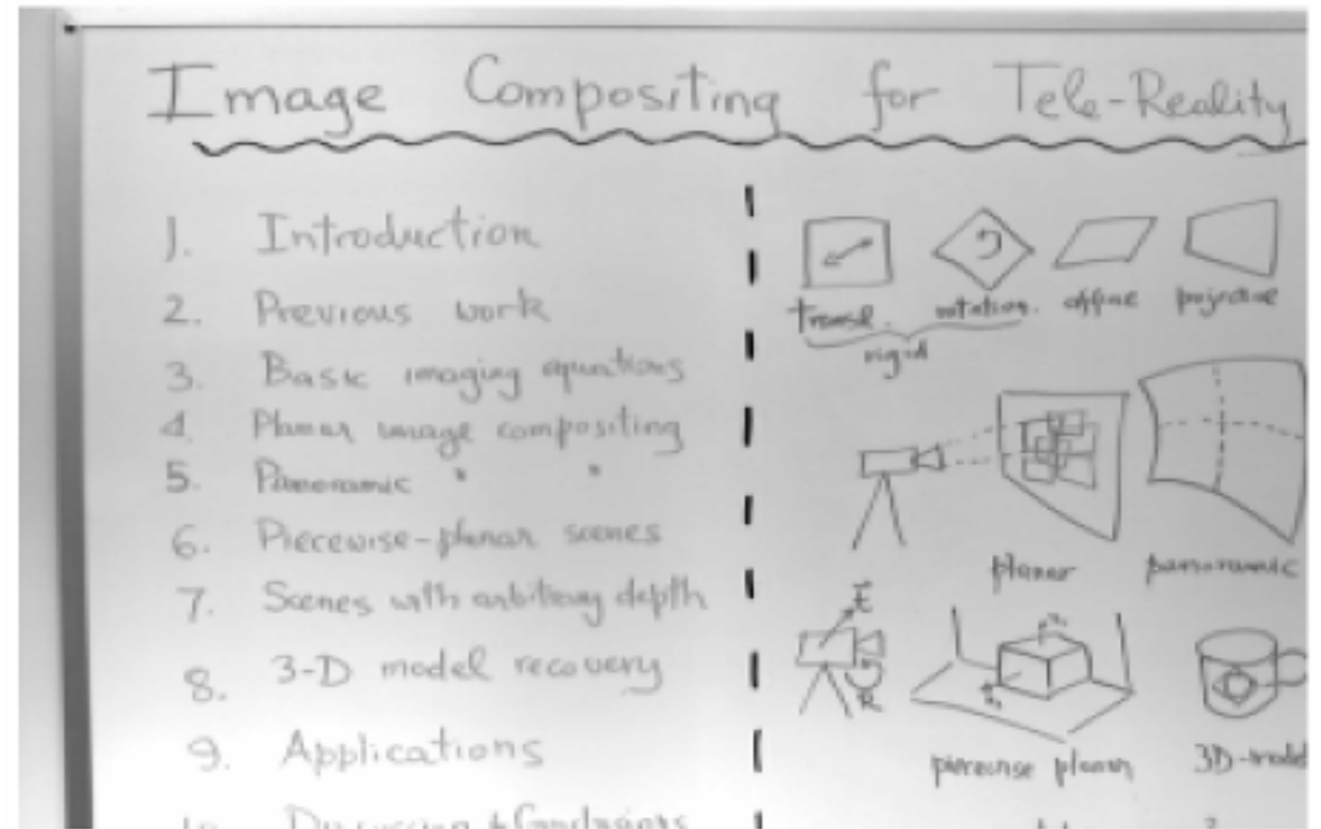 Image Compositing for Tele-Reality
1. Introduction
2. Previous work
3. Basic imaging equations
4. Planar image compositing
5. Panoramic " "
6. Piecewise-planar scenes
7. Scenes with arbitrary depth
8. 3-D model recovery
9. Applications
10. Discussion & Conclusions
transl. rotation. affine projective
rigid
planar panoramic
t
R
piecewise planar 3D-model